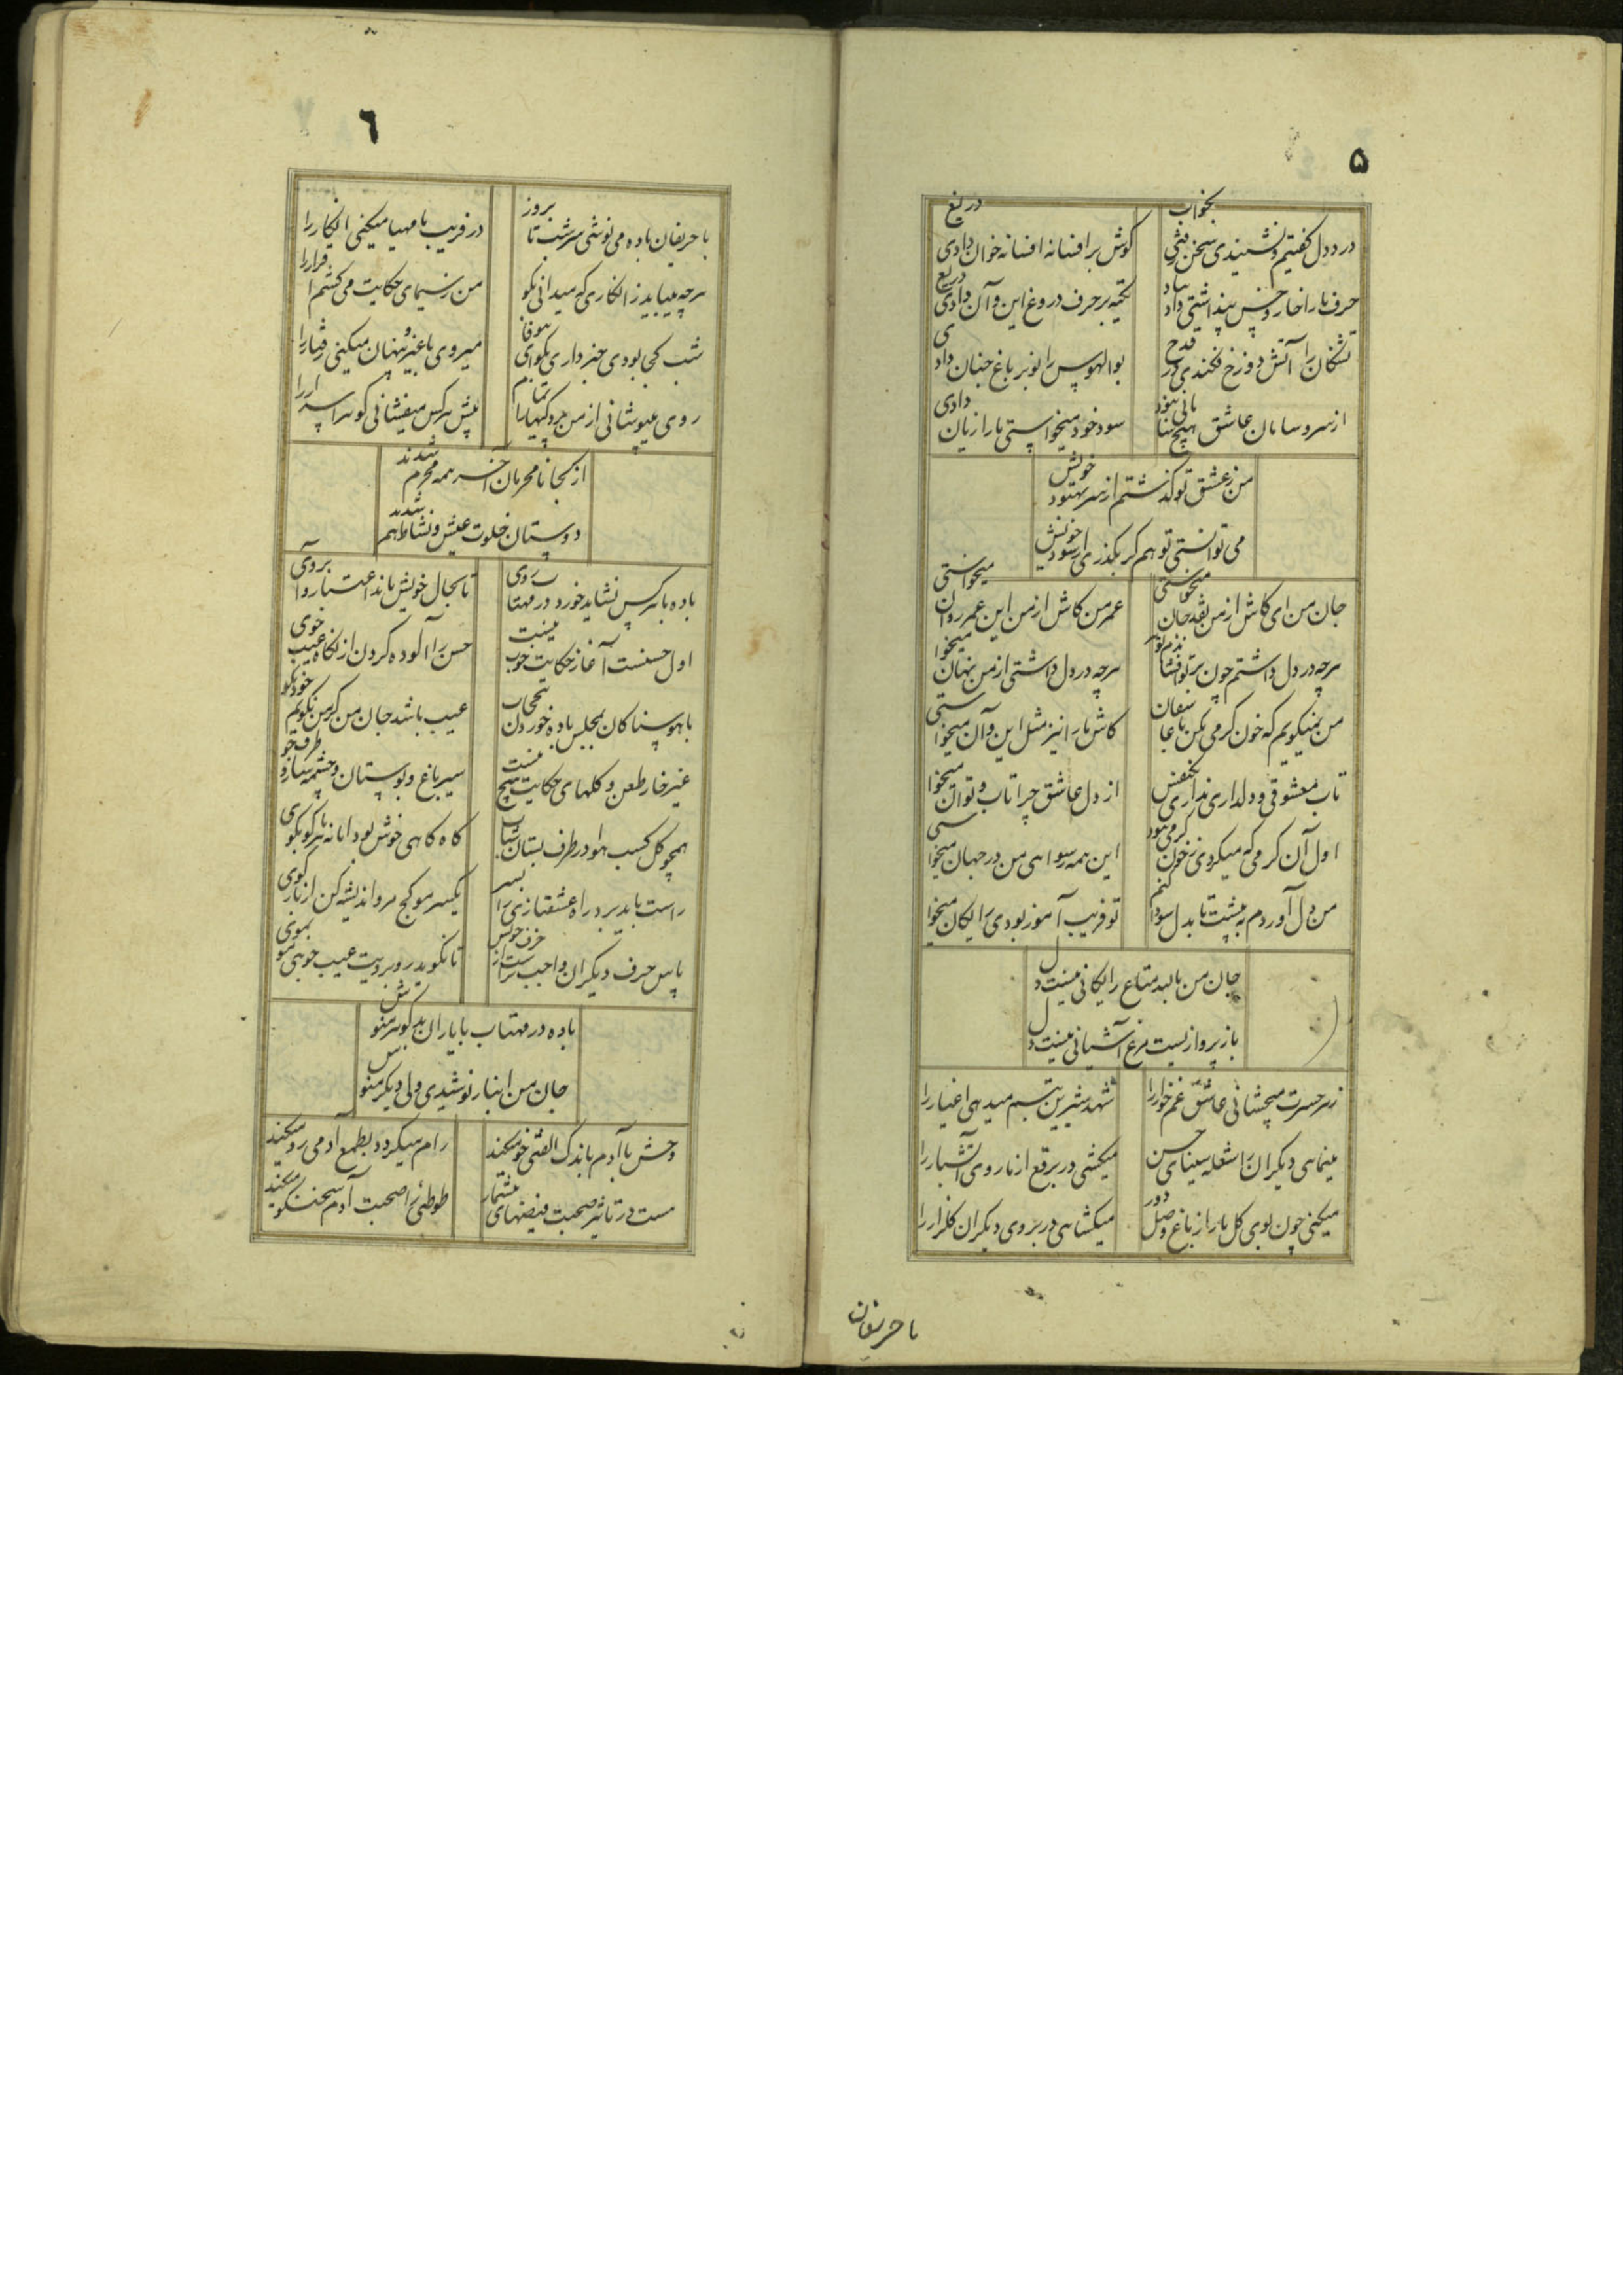 ۵
درد دل گفتیم و نشنیدی سخن رفتی بخواب
گوش بر افسانه افسانه خوان دادی دریغ
حرف ما را خار و خس پنداشتی دادی بباد
تکیه بر حرف دروغ این و آن دادی دریغ
تشنگان را آتش دوزخ فکندی در قدح
بوالهوس را نوبر باغ جنان دادی
از سر و سامان عاشق هیچ
سود خود میخواستی ما را زیان دادی
من ز عشق تو گذشتم از سر بهبود خویش
می توانستی تو هم گر بگذری از سود خویش
جان من ای کاش از من نقد جان میخواستی
عمر من کاش از من این عمر روان میخواستی
هرچه در دل داشتم چون بر تو
هرچه در دل داشتی از من نهان میخواستی
من نمیگویم که خون گرمی مکن با عاشقان
کاش ما را نیز مثل این و آن میخواستی
تاب معشوقی و دلداری نداری
از دل عاشق چرا تاب و توان میخواستی
اول آن گرمی که میکردی نه خون گرمی نبود
این همه رسوایی من در جهان میخواستی
من دل آوردم به پیشت تا بدل سودا کنم
تو فریب آموز بودی رایگان میخواستی
جان من نالبد متاع رایگانی نیست دل
باز پرواز نیست مرغ آشیانی نیست دل
زهر حسرت میچشانی عاشق غم خوار را
شهد شیرین تبسم میدهی اغیار را
مینمایی دیگران را شعله سینای حسن
میکشی در برقع از ما روی آتشبار را
میکنی چون بوی گل ما را ز باغ وصل دور
میگشایی در بروی دیگران گلزار را
با حریفان
٦
با حریفان باده می نوشی سر شب تا بروز
در فریب ما مهیا میکنی انکار را
هرچه میباید ز انکاری که میدانی بگو
من ز سیمای حکایت می کشم اقرار را
شب کجا بودی خبر داری بگو ای بیوفا
میروی با غیر و پنهان میکنی رفتار را
روی میپوشانی از من
پیش هر کس میفشانی گوهر اسرار را
از کجا نامحرمان آخر همه محرم شدند
دوستان خلوت عیش و نشاط هم شدند
باده با هر کس نشاید خورد در مهتاب روی
تا بحال خویش ماند اعتبار و آبروی
اول حسنست آغاز حکایت خوب نیست
حسن را آلوده کردن از نگاه عیب جوی
با هوسناکان بمجلس باده خوردن
عیب باشد جان من گر من نگویم خود بگو
غیر خار طعن و گلهای حکایت هیچ نیست
سیر باغ و بوستان و چشمه سار و طرف جو
همچو گل کسب هوا در طرف بستان
گاه گاهی خوش بود اما نه
راست باید بر در راه عشقبازی را بسر
یکسر مو کج مرو اندیشه کن از
پاس حرف دیگران واجب تر است از حرف خویش
تا نگوید روبرویت عیب جویی مو بموی
باده در مهتاب با یاران بد گوهر منوش
جان من اینبار نوشیدی ولی دیگر منوش
وحش با آدم باندک الفتی خو میکند
رام میگردد بطمع آدمی رو میکند
هست در تاثیر صحبت فیضهای بیشمار
طوطئ را صحبت آدم سخنگو میکند